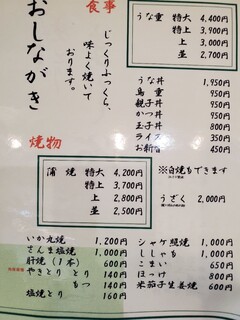 おしながき
じっくりふっくら、
味よく焼いて
おります。
食事
うな重 特大 4,400円
特上 3,900円
上 3,000円
並 2,700円
うな丼 1,950円
鳥重 950円
親子丼 950円
かつ丼 950円
玉子丼 800円
ライス 350円
お新香 450円
焼物
蒲焼 特大 4,200円
特上 3,700円
上 2,800円
並 2,500円
※白焼もできます
うざく 2,000円
いか丸焼 1,200円
さんま塩焼 1,000円
肝焼(1本) 600円
やきとり とり 140円
もつ 140円
塩焼とり 160円
シャケ照焼 1,000円
ししゃも 1,000円
こまい 650円
ほっけ 800円
米茄子生姜焼 600円